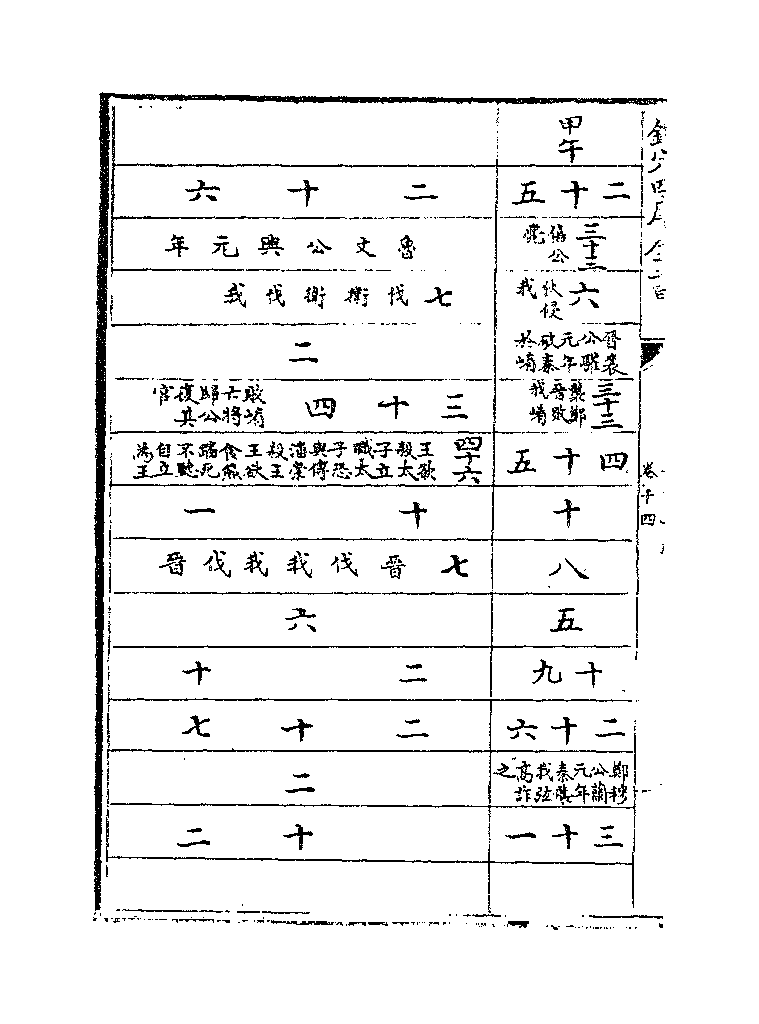 欽定四庫全書
卷十四
甲午
二十五
三十三 僖公薨
六 狄侵我
晉襄公驩元年破秦於崤
三十三 襲鄭晉敗我崤
四十五
十
八
五
十九
二十六
鄭穆公蘭元年秦襲我弦高詐之
三十一
二十六
魯文公興元年
七 伐衛衛伐我
二
三十四 敗崤亡將歸公復其官
四十六 王欲殺太子立職太子恐與傅潘崇殺王王欲食熊蹯死不聽自立為王
十一
七 晉伐我我伐晉
六
二十
二十七
二
十二